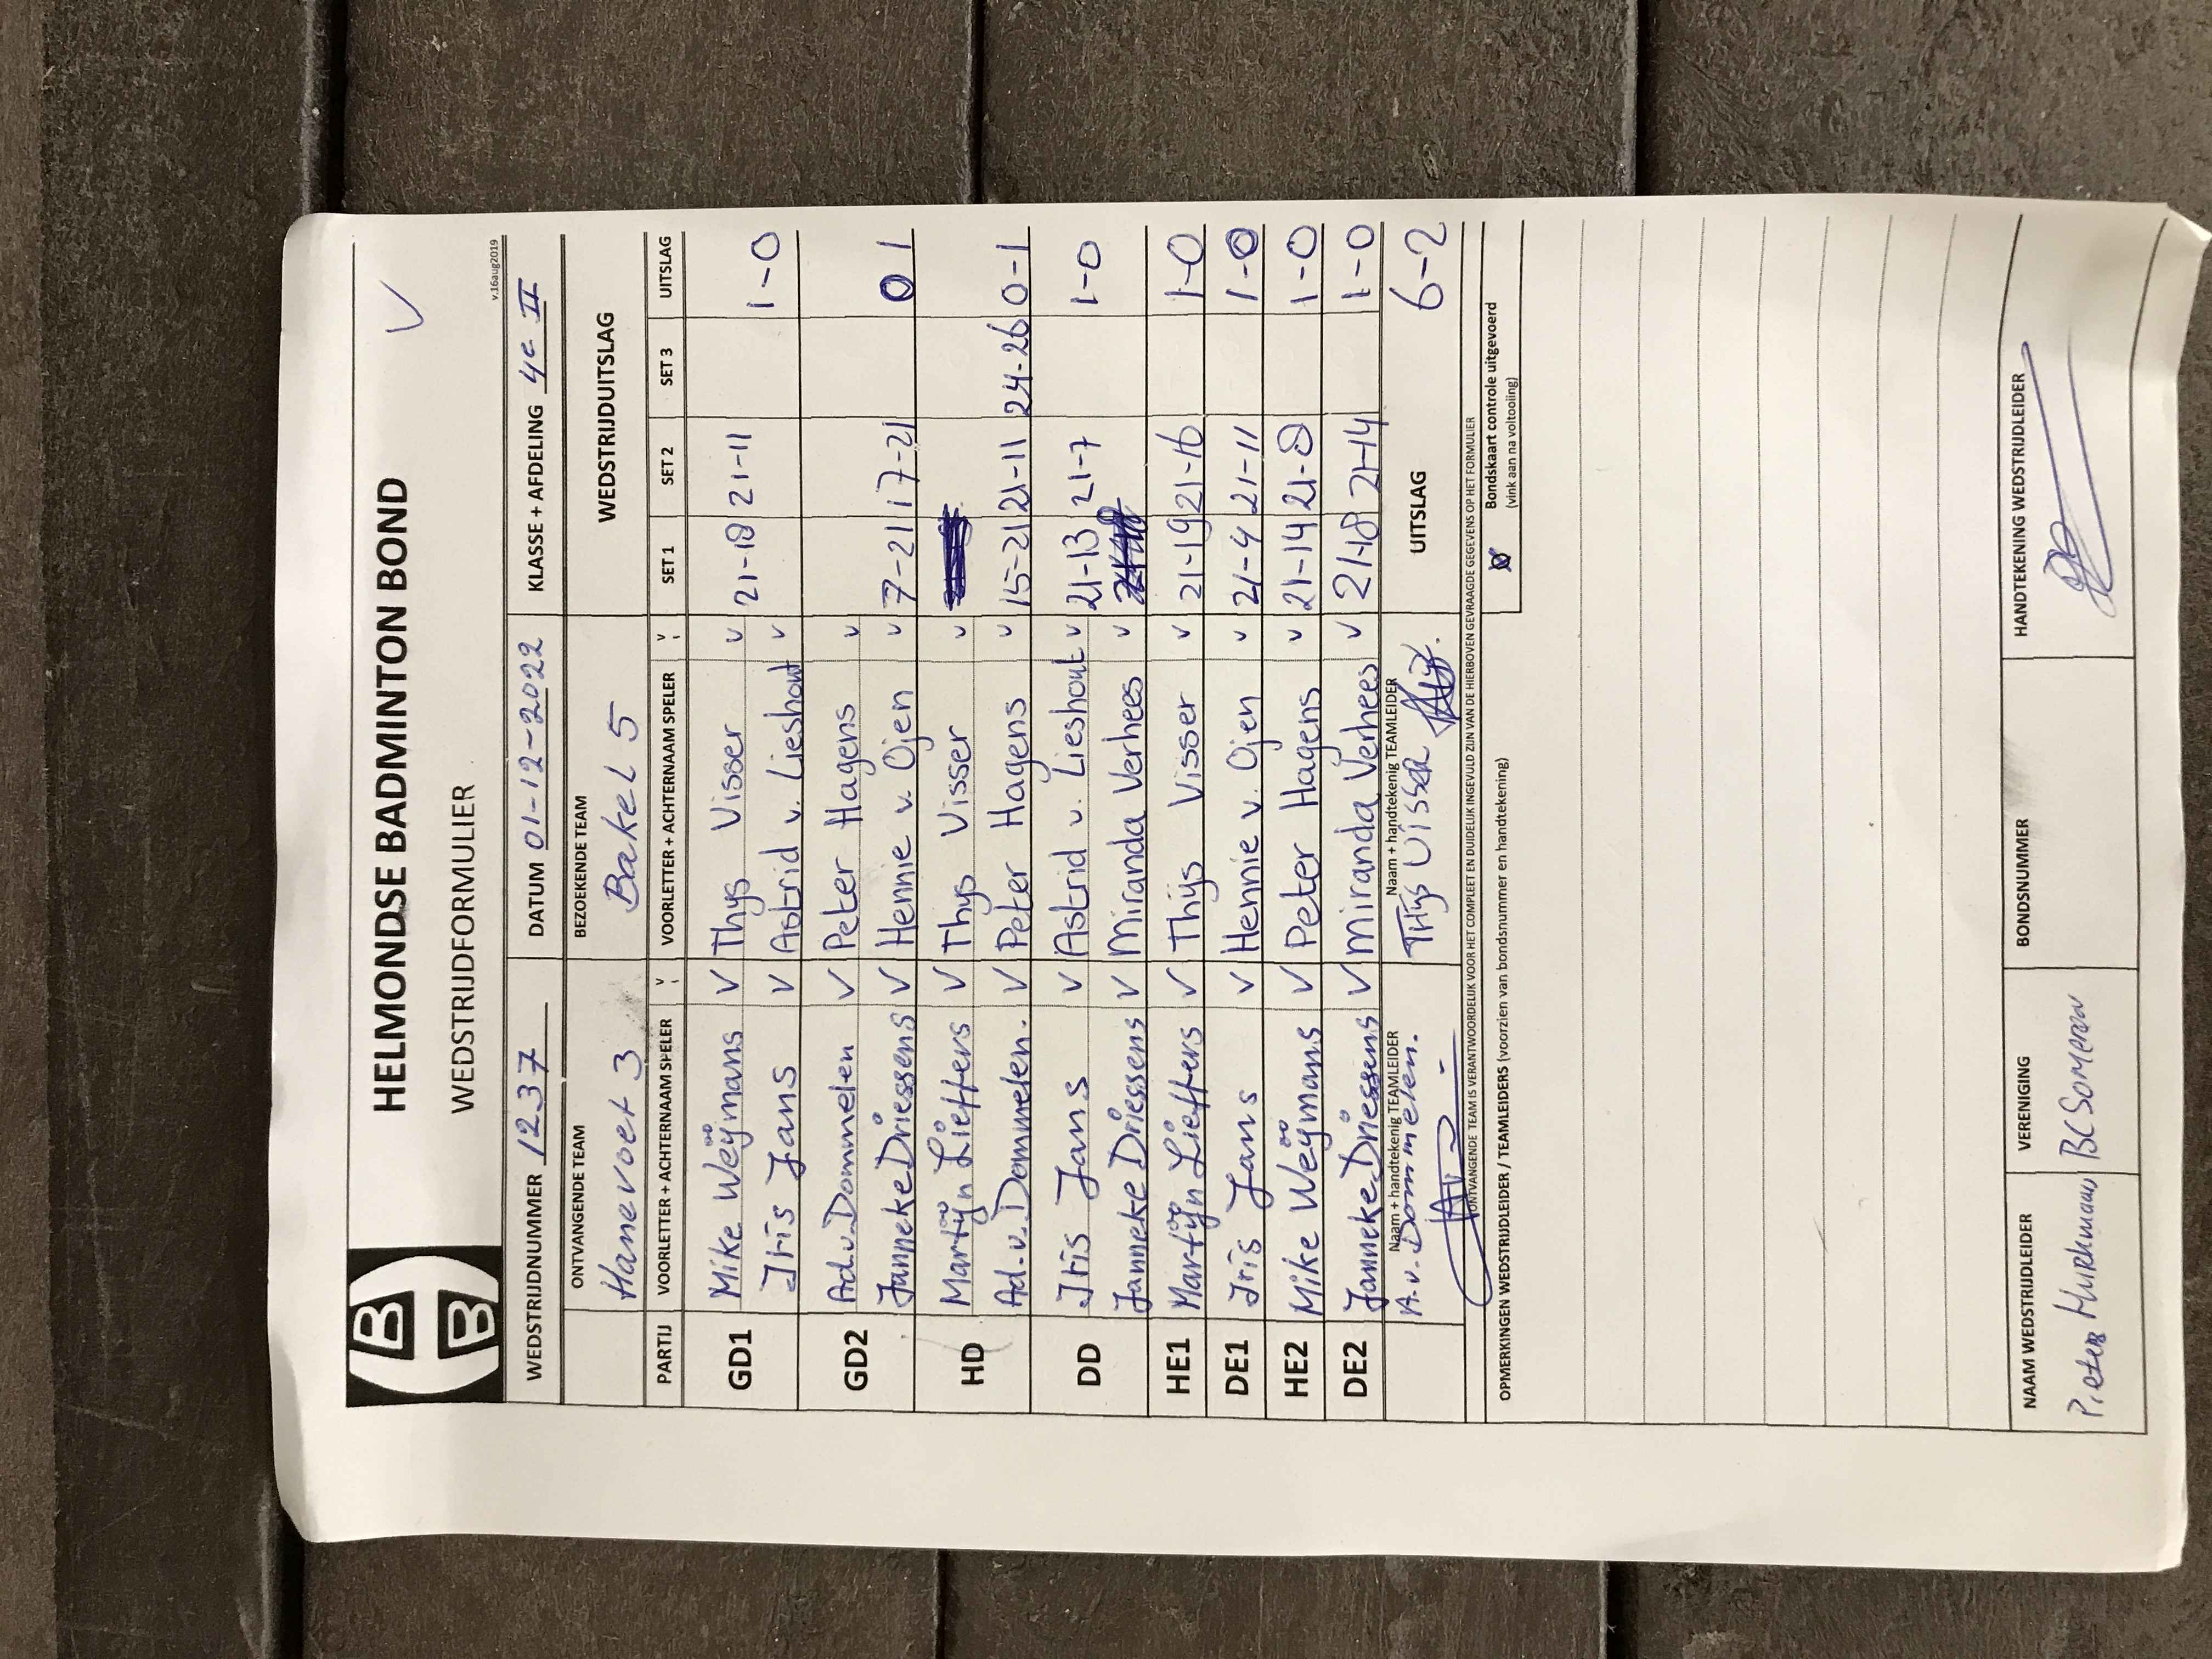 HELMONDSE BADMINTON BOND
WEDSTRIJDFORMULIER
v.16aug2019
WEDSTRIJDNUMMER 1237 DATUM 01-12-2022 KLASSE + AFDELING 4e II
ONTVANGENDE TEAM BEZOEKENDE TEAM WEDSTRIJDUITSLAG
Hanevoet 3 Bakel 5
PARTIJ VOORLETTER + ACHTERNAAM SPELER V VOORLETTER + ACHTERNAAM SPELER V SET 1 SET 2 SET 3 UITSLAG
GD1 Mike Weijmans V Thys Visser V 21-18 21-11 1-0
Iris Jans V Astrid v. Lieshout V
GD2 Ad.v.Dommelen V Peter Hagens V
Janneke Driessens V Hennie v. Ojen V 7-21 17-21 0 1
HD Martijn Lieffers V Thys Visser V
Ad.v.Dommelen. V Peter Hagens V 15-21 21-11 24-26 0-1
DD Iris Jans V Astrid v. Lieshout V 21-13 21-7 1-0
Janneke Driessens V Miranda Verhees V
HE1 Martijn Lieffers V Thijs Visser V 21-19 21-16 1-0
DE1 Iris Jans V Hennie v. Ojen V 21-4 21-11 1-0
HE2 Mike Weijmans V Peter Hagens V 21-14 21-8 1-0
DE2 Janneke Driessens V Miranda Verhees V 21-18 21-14 1-0
Naam + handtekenig TEAMLEIDER Naam + handtekenig TEAMLEIDER
A.v.Dommelen. Thijs Visser UITSLAG 6-2
ONTVANGENDE TEAM IS VERANTWOORDELIJK VOOR HET COMPLEET EN DUIDELIJK INGEVULD ZIJN VAN DE HIERBOVEN GEVRAAGDE GEGEVENS OP HET FORMULIER
OPMERKINGEN WEDSTRIJDLEIDER / TEAMLEIDERS (voorzien van bondsnummer en handtekening)
Bondskaart controle uitgevoerd
(vink aan na voltooiing)
NAAM WEDSTRIJDLEIDER VERENIGING BONDSNUMMER HANDTEKENING WEDSTRIJDLEIDER
BC Someren